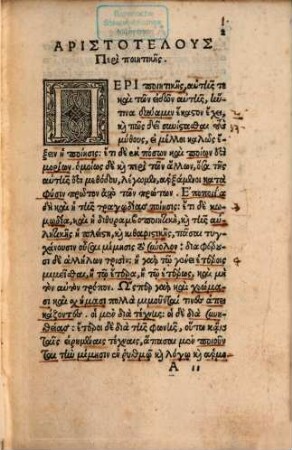 ΑΡΙΣΤΟΤΕΛΟΥΣ
Περὶ ποιητικῆς.
ΠΕΡΙ ποιητικῆς, αὐτῆς τε
καὶ τῶν εἰδῶν αὐτῆς, ἥν
τινα δύναμιν ἕκαστον ἔχει,
κỳ πῶς δεῖ συνίστασθαι τοὺς
μύθους, εἰ μέλλοι καλῶς ἕ-
ξειν ἡ ποίησις: ἔτι δὲ ἐκ πόσων καὶ ποίων ἐστὶ
μορίων. ὁμοίως δὲ κỳ περὶ τῶν ἄλλων, ὅσα τῆς
αὐτῆς ἐστι μεθόδου, λέγωμεν, ἀρξάμενοι κατὰ
φύσιν πρῶτον ἀπὸ τῶν πρώτων. Ἐποποιΐα
δὴ καὶ ἡ τῆς τραγῳδίας ποίησις: ἔτι δὲ κω-
μῳδία, καὶ ἡ διθυραμβοποιητικὴ, κỳ τῆς αὐ-
λητικῆς ἡ πλείστη, κỳ κιθαριστικῆς, πᾶσαι τυγ-
χάνουσιν οὖσαι μιμήσεις τὸ σύνολον: διαφέρου-
σι δὲ ἀλλήλων τρισίν: ἢ γὰρ τῷ γένει ἑτέροις
μιμεῖσθαι, ἢ τῷ ἕτερα, ἢ τῷ ἑτέρως, καὶ μὴ
τὸν αὐτὸν τρόπον. Ὥσπερ γὰρ καὶ χρώμα-
σι καὶ σχήμασι πολλὰ μιμοῦνταί τινες ἀπει-
κάζοντες. οἱ μὲν διὰ τέχνης: οἱ δὲ διὰ συνη-
θείας: ἕτεροι δὲ διὰ τῆς φωνῆς, οὕτω κἂν
ταῖς εἰρημέναις τέχναις, ἅπασαι μὲν ποιοῦν
ται τὴν μίμησιν ἐν ῥυθμῷ κỳ λόγῳ κỳ ἁρμο-
A ii